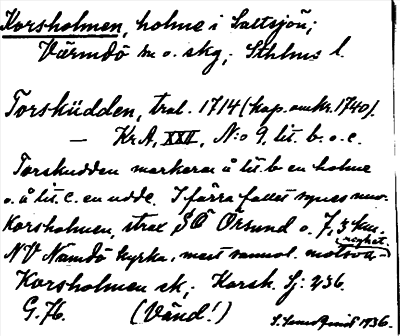 Korsholmen, holme i Saltsjön;
Värmdö sn o. skg; Sthlms l.
Torskûdden, tral. 1714 (kop. omkr. 1740).
— Kr.A, XXII, N:o 9, lit. b. o. c.
Torskudden markerar å lit. b en holme
o. å lit. c. en udde. I förra fallet synes nuv.
Korsholmen, strax SO Örsund o. 7,3 km.
NV Namdö kyrka, mest sannol. motsva-
righet.
Korsholmen sk; Korsk. Sj: 236.
G. 76. (Vänd!) 1936.